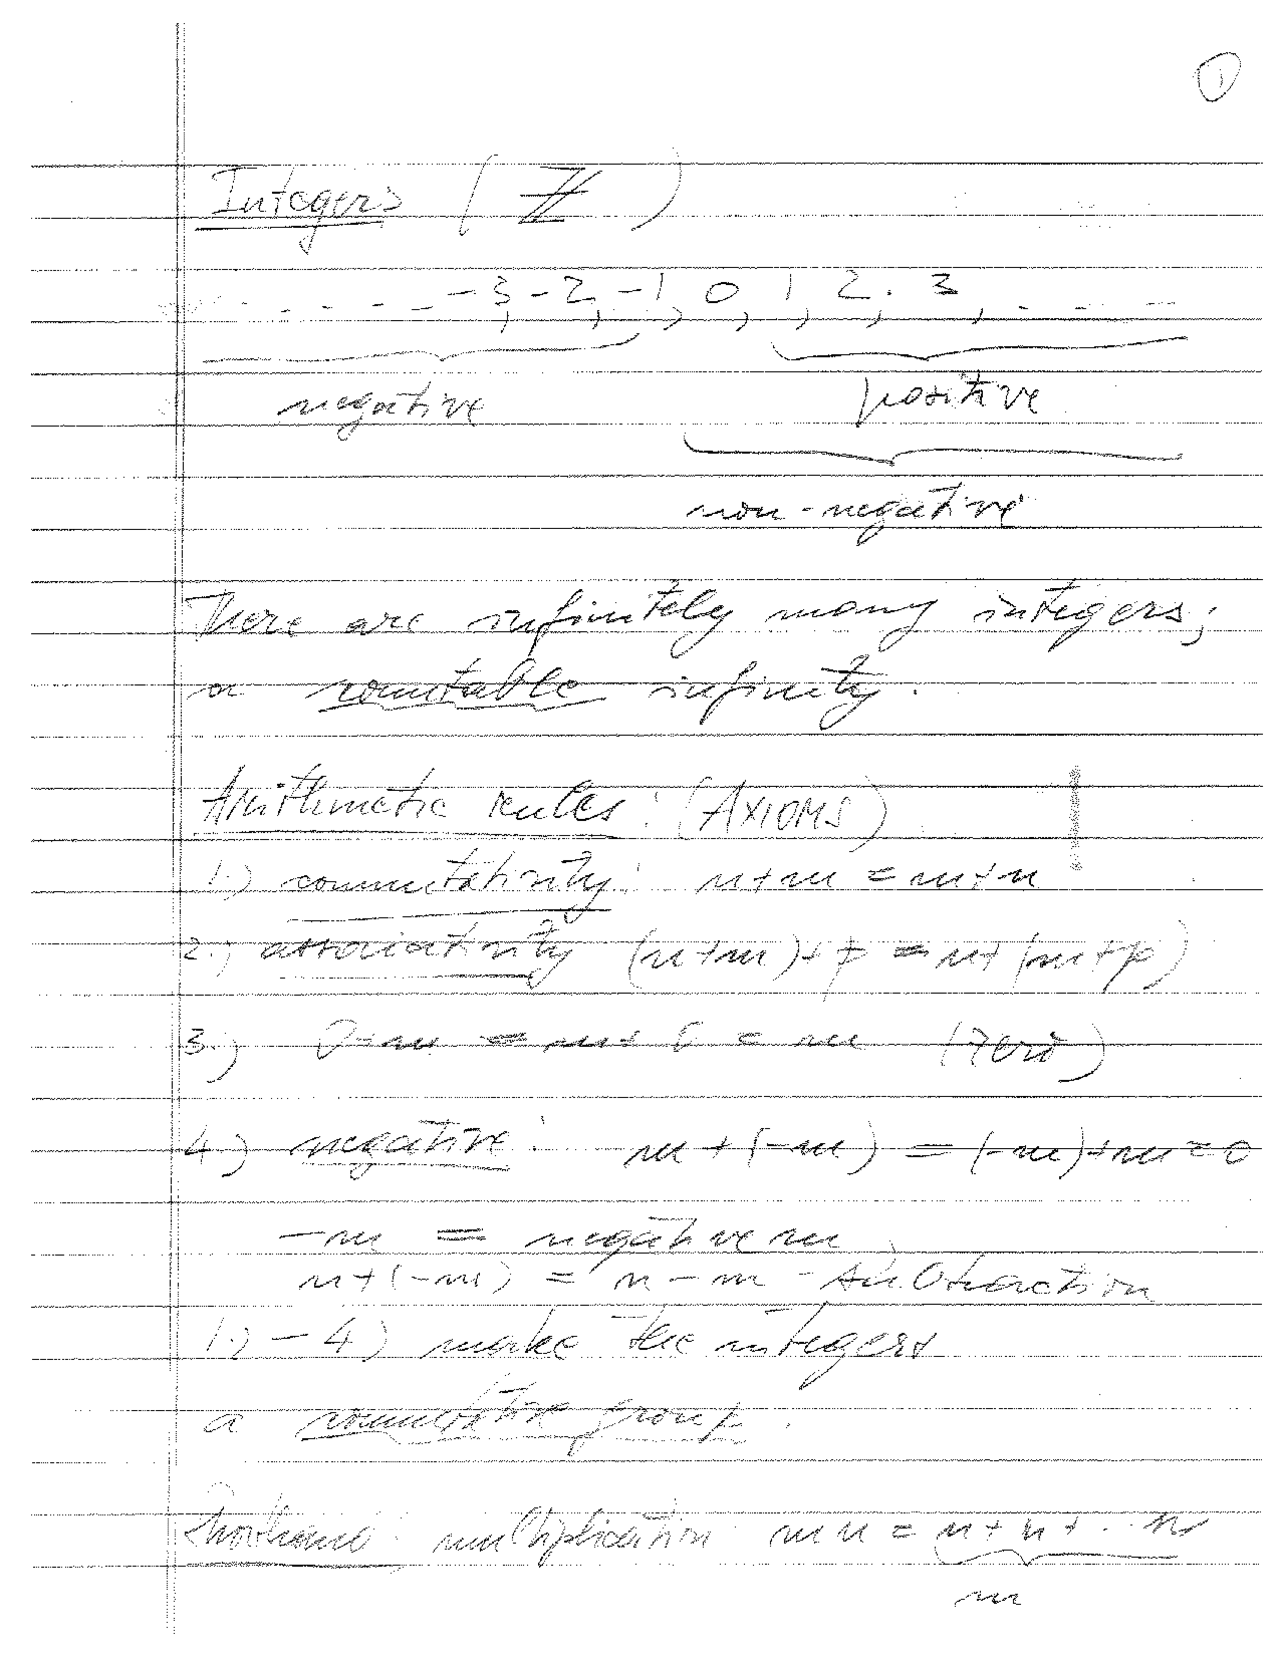 1
Integers (ℤ)
. . - - - -3, -2, -1, 0, 1, 2, 3, . - - -
negative positive
non-negative
There are infinitely many integers;
a countable infinity.
Arithmetic rules: (AXIOMS)
1.) commutativity: n+m = m+n
2.) associativity (n+m)+p = n+(m+p)
3.) 0+m = m+0 = m (zero)
4.) negative: m+(-m) = (-m)+m=0
-m = negative m
n+(-m) = n-m - subtraction
1.) - 4) make the integers
a commutative group.
Shorthand: multiplication mn = n+n+ . . n
m